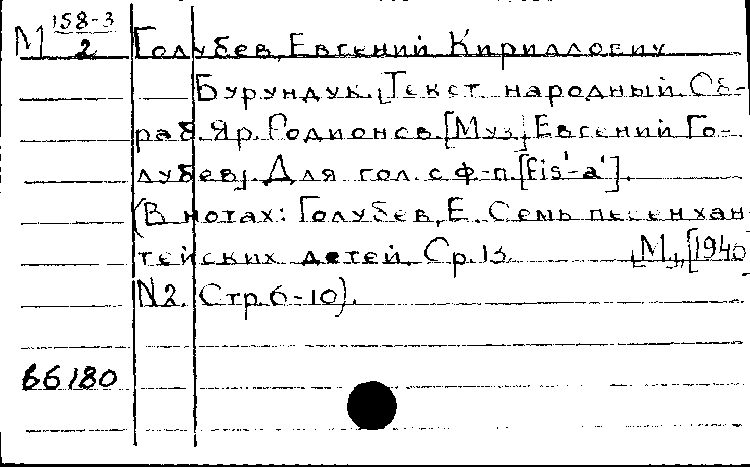 М 158-3/2 Голубев, Евгений Кириллович
Бурундук. [Текст народный. Об-
раб. Яр. Родионов. [Муз.] Евгений Го-
лубев]. Для гол. с ф-п. [fis'-a'].
(В нотах: Голубев, Е. Семь песен хан-
тейских детей. Ср. 13. [М.], [1940]
N2. Стр. 6-10).
66180